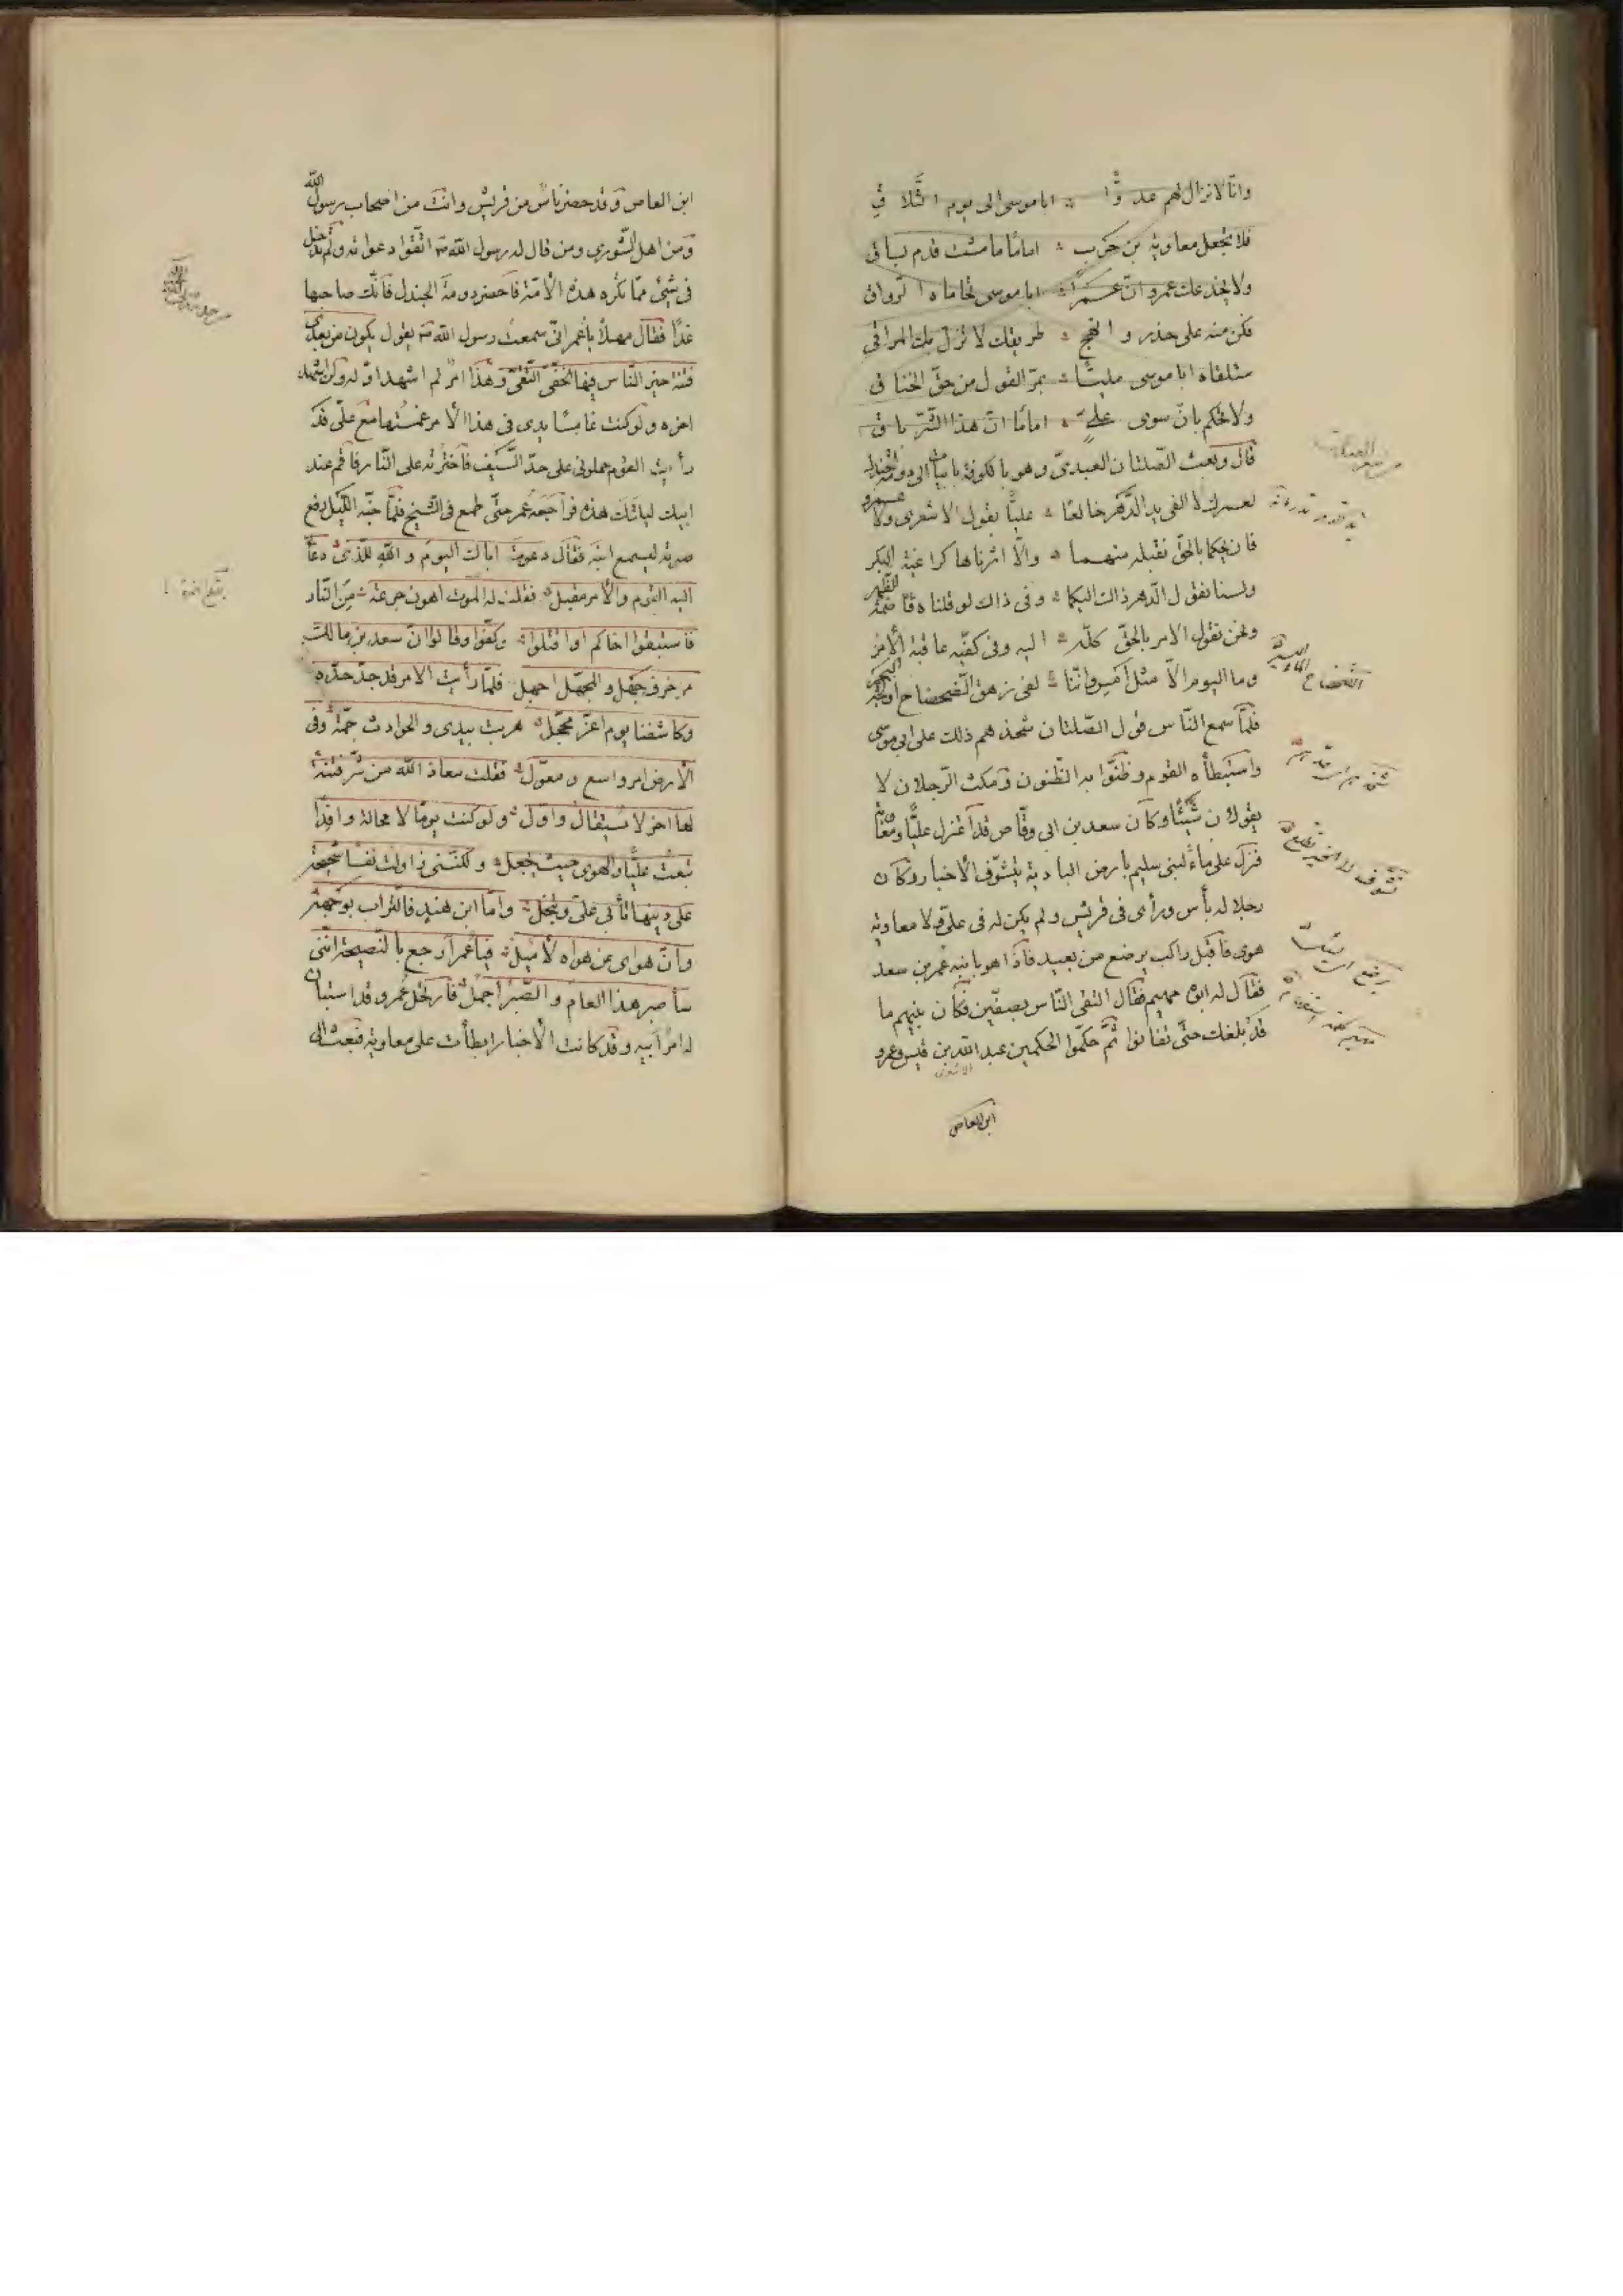 وانّا لا نزال لهم عدوًّا ۞ ابا موسى الى يوم التّلاقي
فلا تجعل معاوية بن حرب ۞ امامًا ما مشت قدم بساق
ولا يخدعك عمرو انّ عمرًا ۞ ابا موسى تحاماه الرواق
فكن منه على حذر وانهج ۞ طريقك لا تزل بك المراقي
ستلقاه ابا موسى مليًّا ۞ بمرّ القول من حقّ الخناق
ولا تحكم بان سوى علي ۞ امامًا انّ هذا الشّرّ باق
قال وبعث الصّلتان العبديّ وهو بالكوفة بابيات الى دومة الجندل
لعمرك لا الفى يد الدّهر خالعًا ۞ عليًّا بقول الاشعرى ولا عمرو
فان يحكما بالحقّ نقبله منهما ۞ والّا اثرناها كراغية البكر
ولسنا نقول الدّهر ذاك اليكما ۞ وفى ذاك لو قلناه قاصمة الظّهر
ولكن نقول الامر بالحقّ كلّه ۞ اليه وفى كفّيه عاقبة الأمر
وما اليوم الّا مثل امس وانّنا ۞ لفى زهق الضّحضاح او لجّة البحر
فلمّا سمع النّاس قول الصّلتان شحذهم ذلك على ابى موسى
واستبطأه القوم وظنّوا به الظّنون ومكث الرّجلان لا
يقولان شيئًا وكان سعد بن ابى وقّاص قد اعتزل عليًّا ومعاوية
فنزل على ماء لبنى سليم بأرض البادية يتشوّف الأخبار وكان
رجلا له بأس ورأى فى قريش ولم يكن له فى علىّ ولا معاوية
هوى فاقبل راكب يوضع من بعيد فاذا هو بابنه عمر بن سعد
فقال له ابوه مهيم فقال التقى النّاس بصفّين فكان بينهم ما
قد بلغك حتّى تفانوا ثمّ حكّموا الحكمين عبد الله بن قيس وعمرو
الاشعرى
ابن العاص
الضّحضاح الماء اليسير
ابن العاص وقد حضر ناس من قريش وانت من اصحاب رسول الله
ومن اهل الشّورى ومن قال له رسول الله ص اتّقوا دعواته ولم تدخل
فى شئ ممّا تكره هذه الأمّة فاحضر دومة الجندل فانّك صاحبها
غدًا فقال مهلاً يا عمر انّى سمعت رسول الله ص يقول يكون من بعدى
فتنة خير النّاس فيها الخفىّ التّقىّ وهذا امر لم اشهد اوّله ولن اشهد
اخره ولو كنت غامسًا يدى فى هذا الأمر غمستها مع علىّ قد
رأيت القوم حملونى على حدّ السّيف فاخترته على النّار فاقم عند
ابيك ليلتك هذه فراجعه عمر حتّى طمع فى الشّيخ فلمّا جنّه اللّيل رفع
صوته ليسمع ابنه فقال دعوت اباك اليوم والله للّذى دعا
اليه القوم والأمر مقبل ۞ فقلت له الموت اهون جرعة ۞ من النّار
فاستبقوا اخاكم او اقتلوا ۞ وكفّوا وقالوا انّ سعد بن مالك
مزخرف جهل والمجهّل اجهل فلمّا رأيت الامر قد جدّ جدّه
وكاشفنا يوم اغرّ محجّل ۞ هربت بدينى والحوادث جمّة وفى
الأرض امر واسع ومعوّل ۞ فقلت معاذ الله من شرّ فتنة
لها اخر لا يستقال واوّل ۞ ولو كنت يومًا لا محالة وافدًا
تبعت عليًّا والهوى حيث يجعل ۞ ولكنّنى زاولت نفسًا شحيحة
على دينها تأبى علىّ وتبخل ۞ وامّا ابن هند فالتّراب بوجهه
وانّ هواى عن هواه لأميل ۞ فيا عمر ارجع بالنّصيحة انّنى
سأصبر هذا العام والصّبر اجمل ۞ فارتحل عمرو قد استبان
له امر ابيه وقد كانت الأخبار ابطأت على معاوية فبعث الى